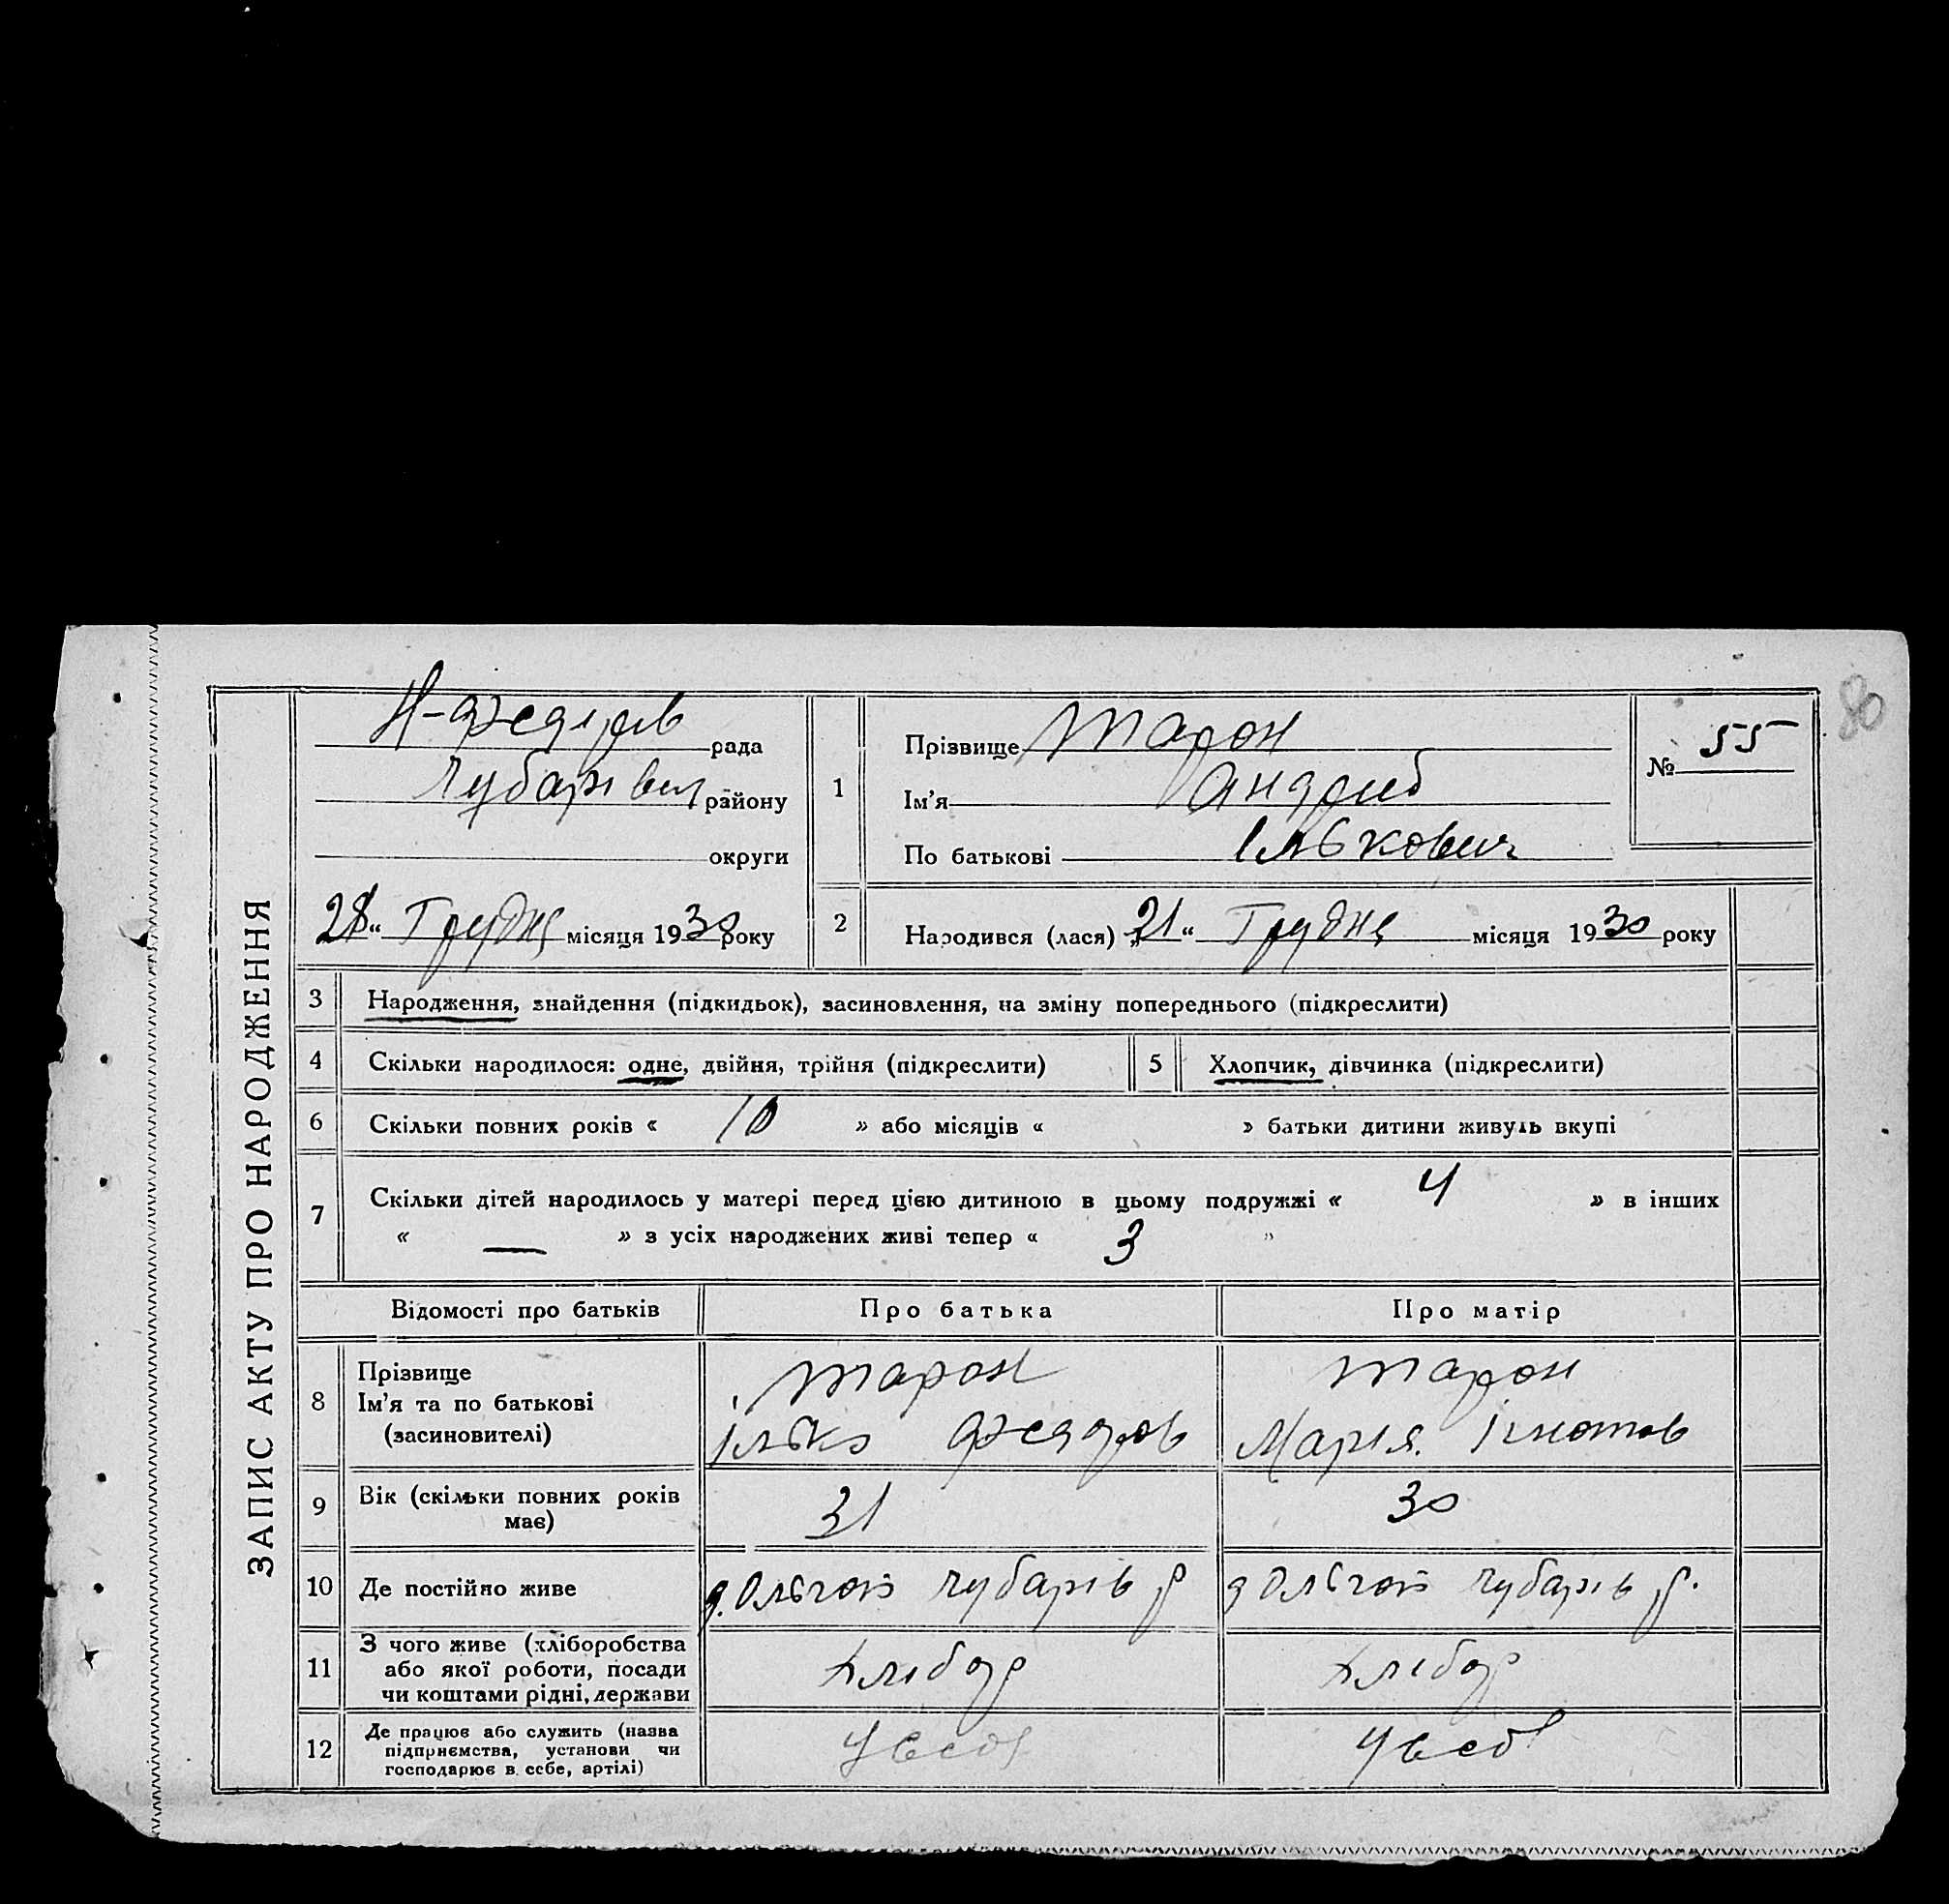 ЗАПИС АКТУ ПРО НАРОДЖЕННЯ
80
Н-Федорів рада
Чубарівськ району
округи
28 " Грудня місяця 1930 року
1
Прізвище Тарон
Ім'я Андрій
По батькові Ількович
№ 55
2
Народився (лася) „21 " Грудня місяця 1930 року
3 Народження, знайдення (підкидьок), засиновлення, на зміну попереднього (підкреслити)
4 Скільки народилося: одне, двійня, трійня (підкреслити) 5 Хлопчик, дівчинка (підкреслити)
6 Скільки повних років « 10 » або місяців « » батьки дитини живуть вкупі
7 Скільки дітей народилось у матері перед цією дитиною в цьому подружжі « 4 » в інших
« — » з усіх народжених живі тепер « 3 »
Відомості про батьків Про батька Про матір
8 Прізвище
Ім'я та по батькові
(засиновителі)
Тарон
Ілько Федоров
Тарон
Марія Ігнатов
9 Вік (скільки повних років
має)
31
30
10 Де постійно живе
д. Ольгой Чубарів р
д Ольгой Чубарів р.
11 З чого живе (хліборобства
або якої роботи, посади
чи коштами рідні, держави
хлібор
хлібор
12 Де працює або служить (назва
підприємства, установи чи
господарює в себе, артілі)
У себе
У себе